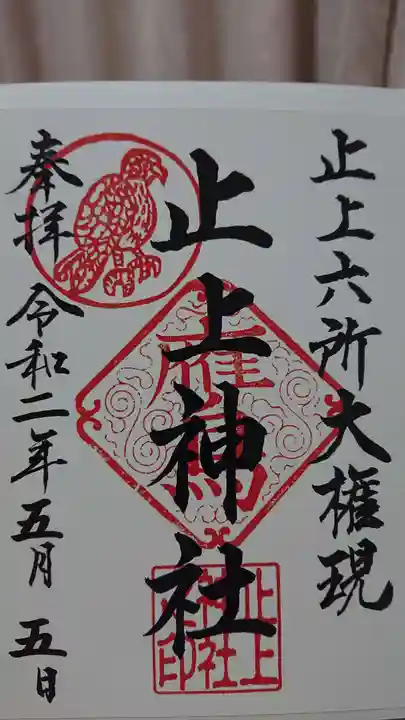 止上六所大権現
止上神社
奉拝 令和二年五月五日
鷹
止上神社之印